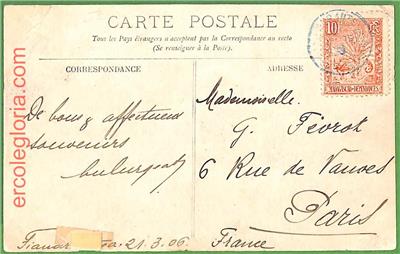 CARTE POSTALE
Tous les Pays étrangers n'acceptent pas la Correspondance au recto
(Se renseigner à la Poste).
CORRESPONDANCE
ADRESSE
De bons & affectueux
souvenirs
21.3.06
Mademoiselle
G. Févrot
6 Rue de Vanves
Paris
France
10
ercolegloria.com